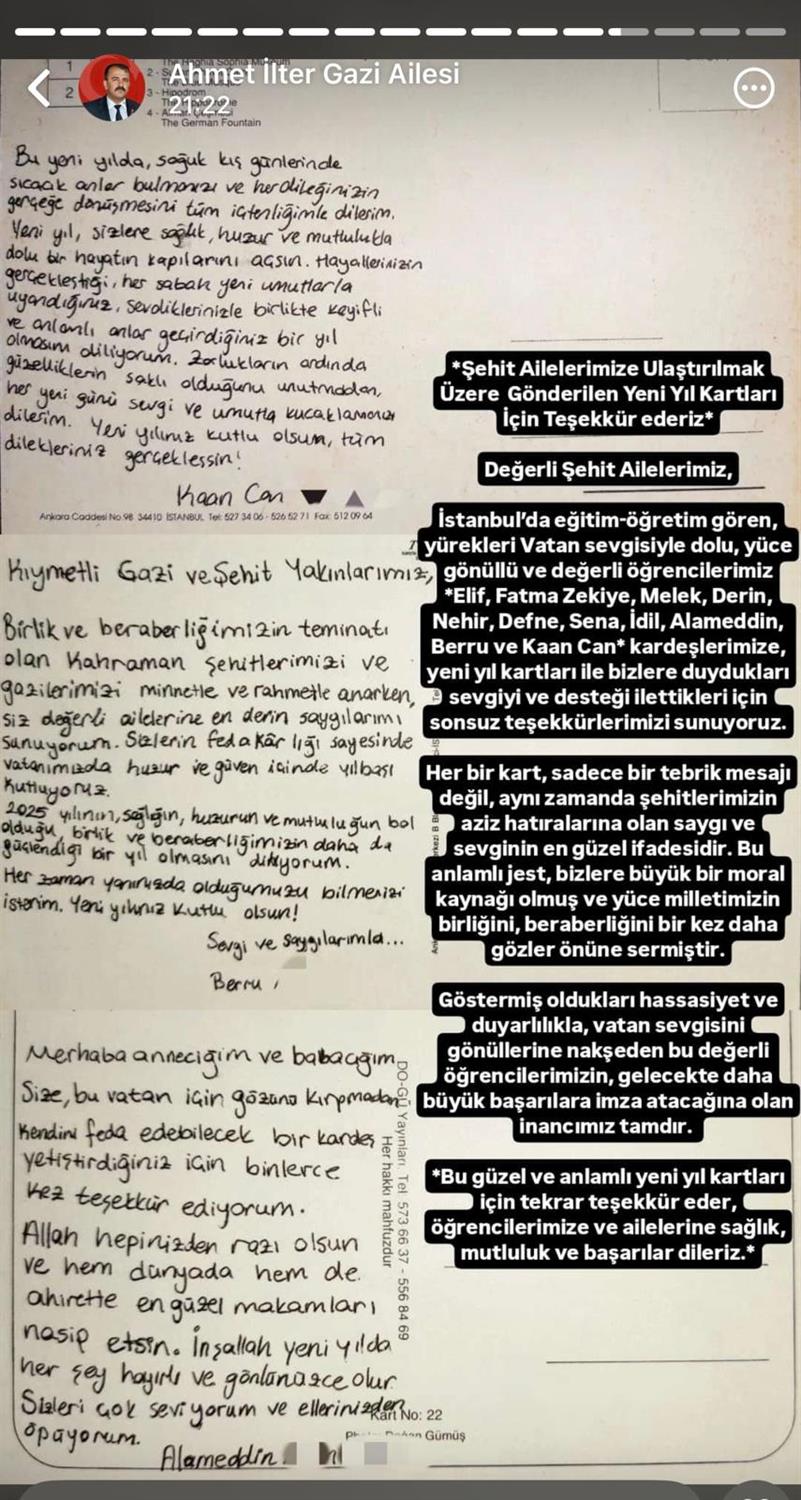 Ahmet İlter Gazi Ailesi
21:22
1
2
The Haghia Sophia Museum
2 -
3 - Hipodrom
The Hippodrome
4 -
The German Fountain
Bu yeni yılda, soğuk kış günlerinde
sıcacık anlar bulmanızı ve her dileğinizin
gerçeğe dönüşmesini tüm içtenliğimle dilerim.
Yeni yıl, sizlere sağlık, huzur ve mutlulukla
dolu bir hayatın kapılarını açsın. Hayallerinizin
gerçekleştiği, her sabah yeni umutlarla
uyandığınız, sevdiklerinizle birlikte keyifli
ve anlamlı anlar geçirdiğiniz bir yıl
olmasını diliyorum. Zorlukların ardında
güzelliklerin saklı olduğunu unutmadan,
her yeni günü sevgi ve umutla kucaklamanızı
dilerim. Yeni yılınız kutlu olsun, tüm
dilekleriniz gerçekleşsin!
Kaan Can
Ankara Caddesi No.98 34410 İSTANBUL Tel: 527 34 06 - 526 52 71 Fax: 512 09 64
Kıymetli Gazi ve Şehit Yakınlarımız,
Birlik ve beraberliğimizin teminatı
olan Kahraman şehitlerimizi ve
gazilerimizi minnetle ve rahmetle anarken,
siz değerli ailelerine en derin saygılarımı
sunuyorum. Sizlerin fedakârlığı sayesinde
vatanımızda huzur ve güven içinde yılbaşı
kutluyoruz.
2025 yılının, sağlığın, huzurun ve mutluluğun bol
olduğu, birlik ve beraberliğimizin daha da
güçlendiği bir yıl olmasını diliyorum.
Her zaman yanınızda olduğumuzu bilmenizi
isterim. Yeni yılınız kutlu olsun!
Sevgi ve saygılarımla...
Berru
Merhaba anneciğim ve babacığım,
Size, bu vatan için gözünü kırpmadan
kendini feda edebilecek bir kardeş
yetiştirdiğiniz için binlerce
kez teşekkür ediyorum.
Allah hepinizden razı olsun
ve hem dünyada hem de
ahirette en güzel makamları
nasip etsin. İnşallah yeni yılda
her şey hayırlı ve gönlünüzce olur
Sizleri çok seviyorum ve ellerinizden
öpüyorum.
Alameddin
DO-GÜ Yayınları. Tel 573 66 37 - 556 84 69
Her hakkı mahfuzdur
Kart No: 22
Gümüş
*Şehit Ailelerimize Ulaştırılmak
Üzere Gönderilen Yeni Yıl Kartları
İçin Teşekkür ederiz*
Değerli Şehit Ailelerimiz,
İstanbul’da eğitim-öğretim gören,
yürekleri Vatan sevgisiyle dolu, yüce
gönüllü ve değerli öğrencilerimiz
*Elif, Fatma Zekiye, Melek, Derin,
Nehir, Defne, Sena, İdil, Alameddin,
Berru ve Kaan Can* kardeşlerimize,
yeni yıl kartları ile bizlere duydukları
sevgiyi ve desteği ilettikleri için
sonsuz teşekkürlerimizi sunuyoruz.
Her bir kart, sadece bir tebrik mesajı
değil, aynı zamanda şehitlerimizin
aziz hatıralarına olan saygı ve
sevginin en güzel ifadesidir. Bu
anlamlı jest, bizlere büyük bir moral
kaynağı olmuş ve yüce milletimizin
birliğini, beraberliğini bir kez daha
gözler önüne sermiştir.
Göstermiş oldukları hassasiyet ve
duyarlılıkla, vatan sevgisini
gönüllerine nakşeden bu değerli
öğrencilerimizin, gelecekte daha
büyük başarılara imza atacağına olan
inancımız tamdır.
*Bu güzel ve anlamlı yeni yıl kartları
için tekrar teşekkür eder,
öğrencilerimize ve ailelerine sağlık,
mutluluk ve başarılar dileriz.*